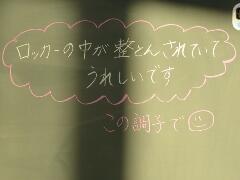 ロッカーの中が整とんされていて
うれしいです
この調子で